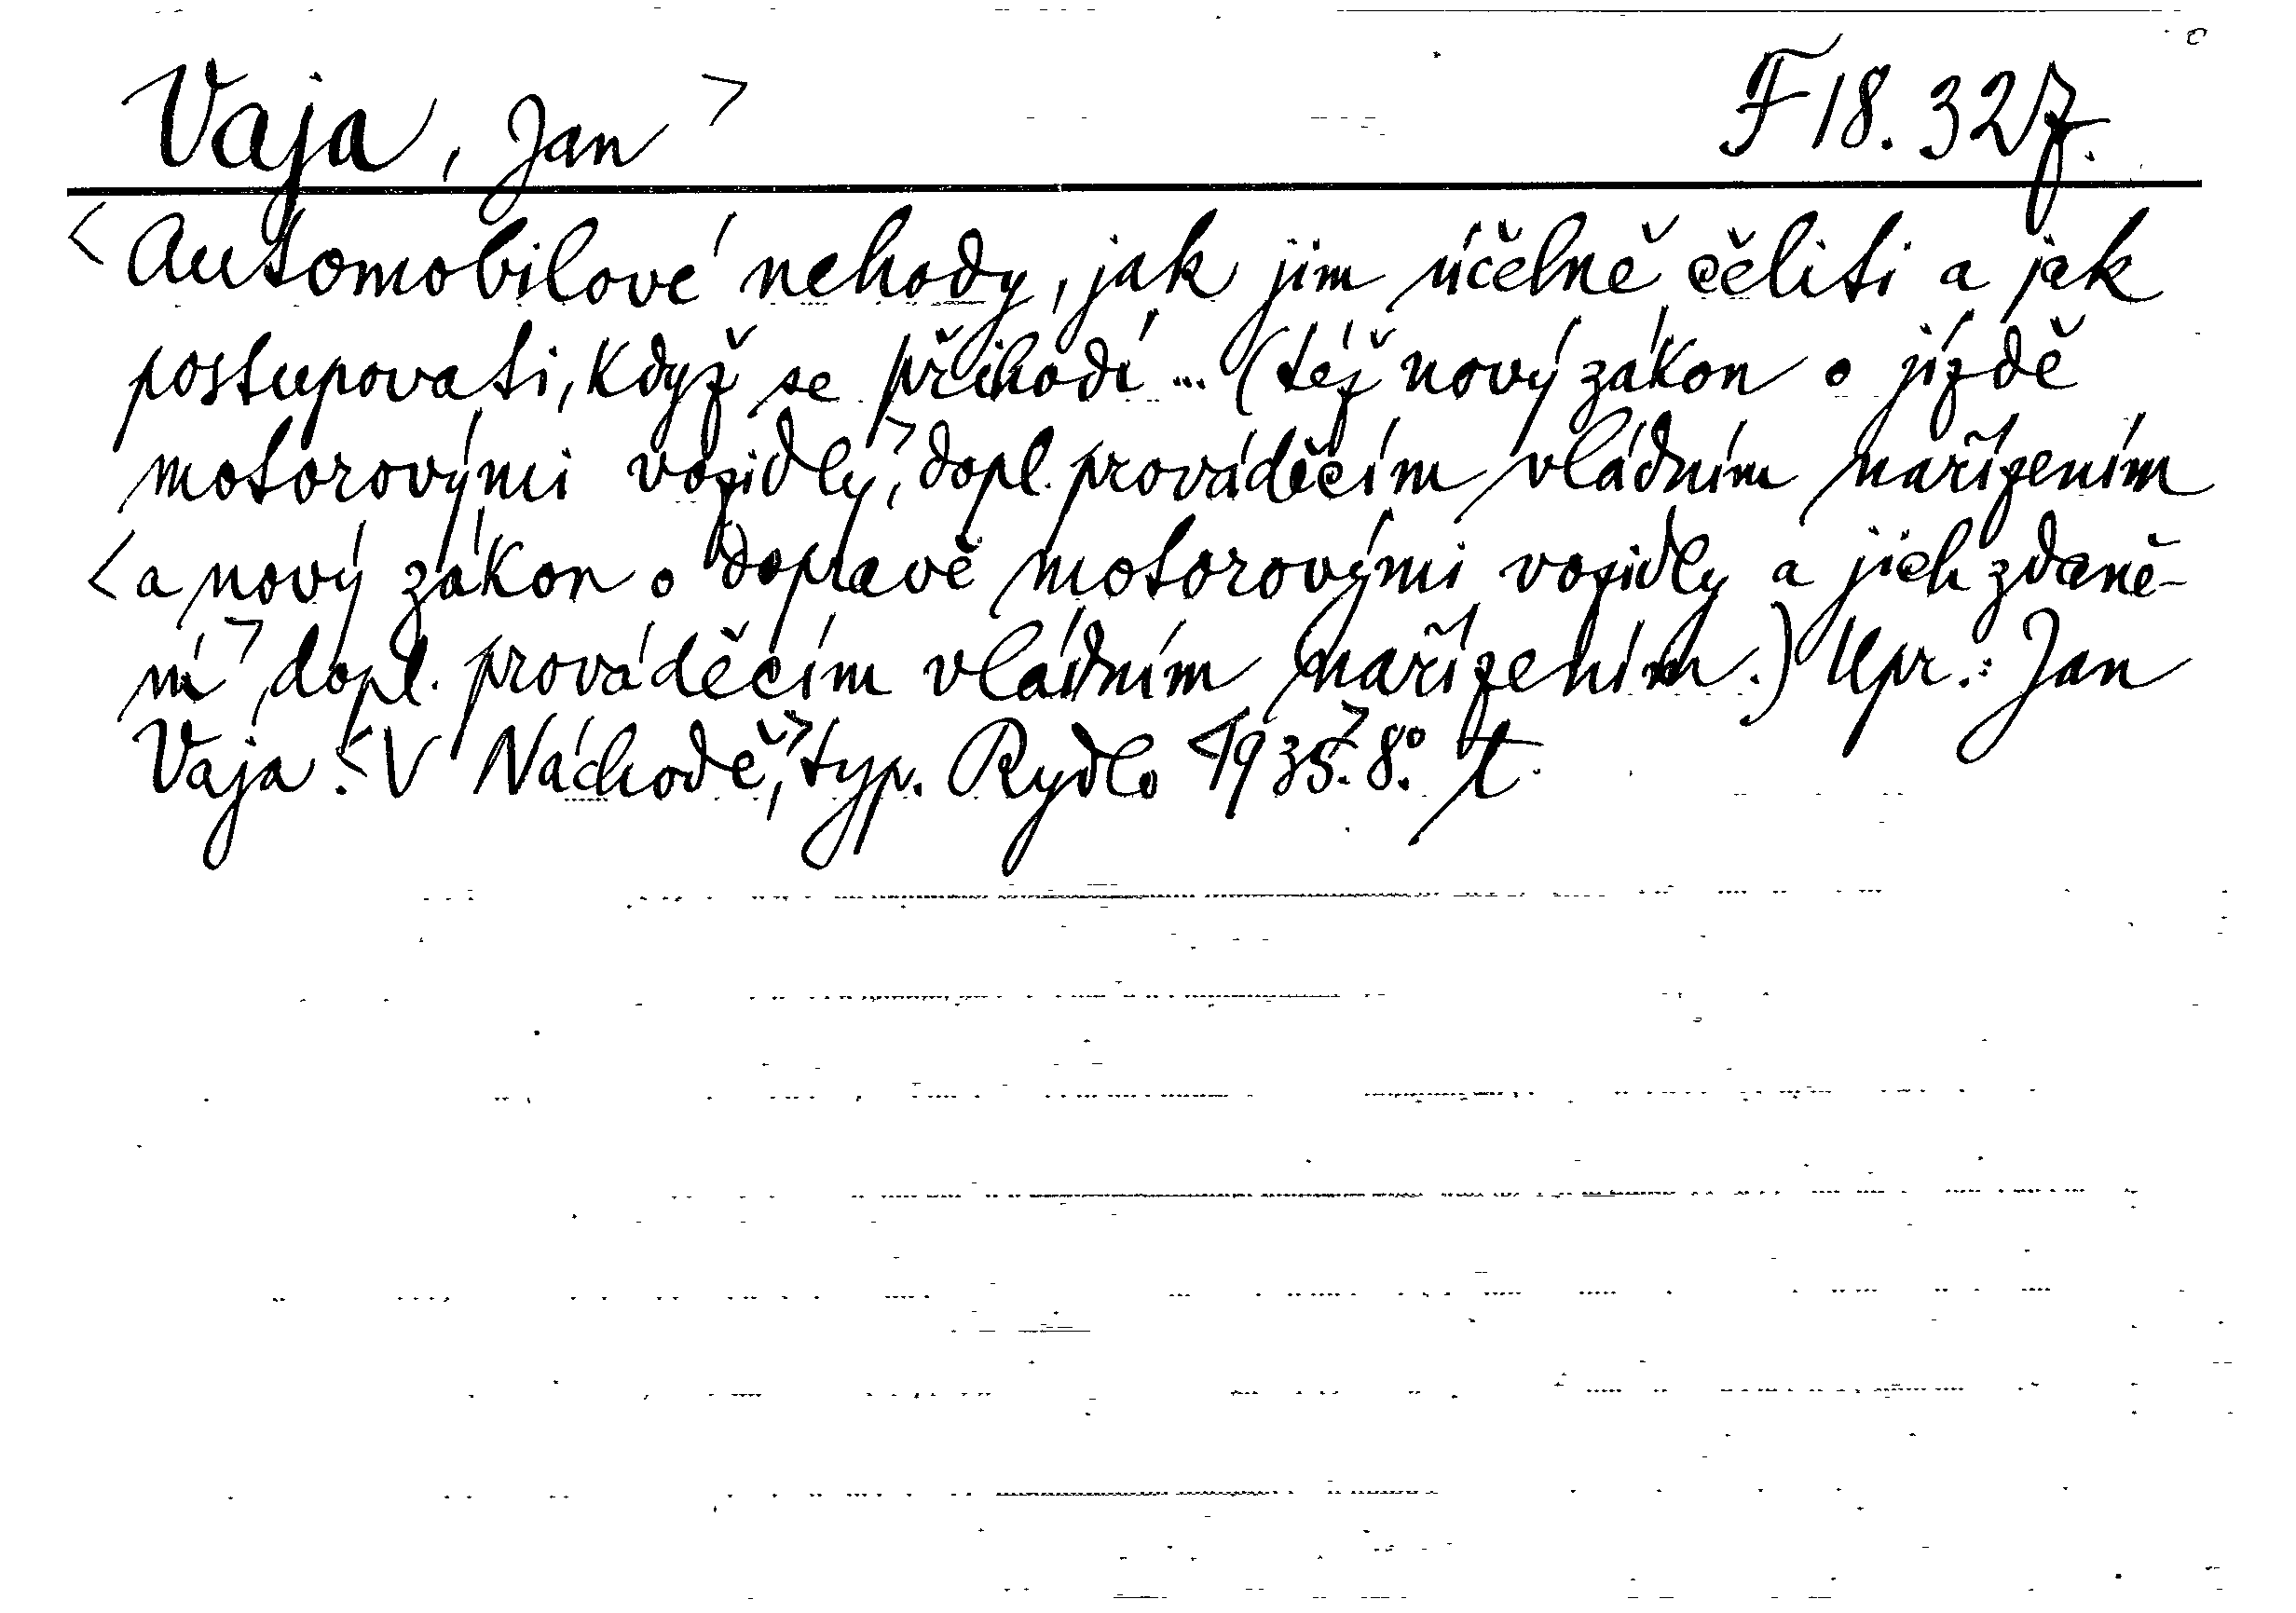 Vaja, Jan > F 18.327.
< Automobilové nehody, jak jim účelně čeliti a jak
postupovati, když se přihodí ... (též nový zákon o jízdě
motorovými vozidly,> dopl. prováděcím vládním nařízením
< a nový zákon o dopravě motorovými vozidly a jich zdaně-
ní > dopl. prováděcím vládním nařízením.) Upr.: Jan
Vaja. < V Náchodě,> typ. Rydlo < 1935.> 8°. t.